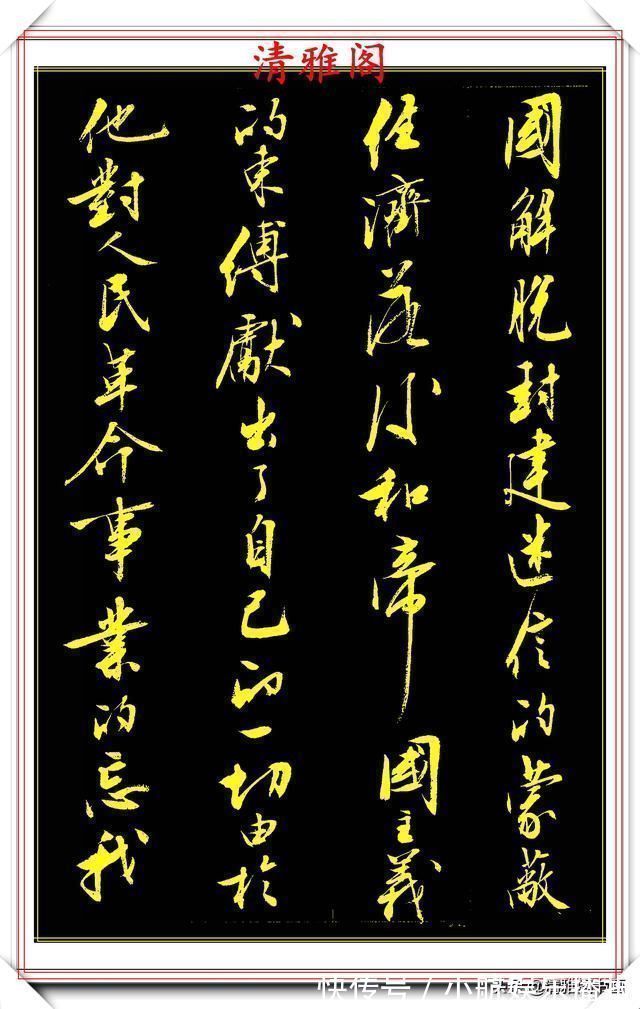 清雅阁
國解脫封建迷信的蒙蔽
經濟落後和帝國主義
的束縛獻出了自己的一切由於
他對人民革命事業的忘我
快传号/小